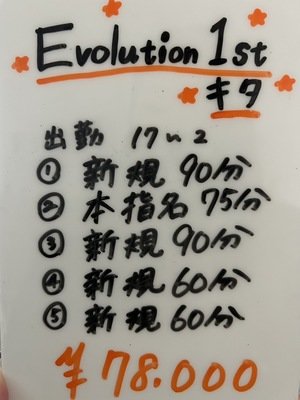 Evolution 1st
キタ
出勤 17〜2
① 新規 90分
② 本指名 75分
③ 新規 90分
④ 新規 60分
⑤ 新規 60分
¥78.000